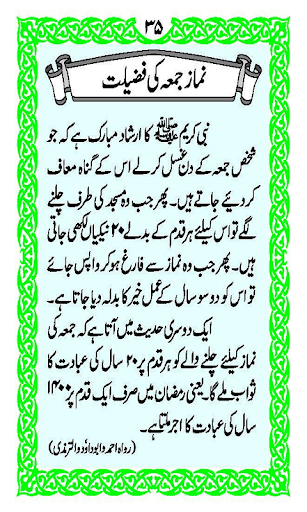 ۳۵
نماز جمعہ کی فضیلت
نبی کریم ﷺ کا ارشاد مبارک ہے کہ جو
شخص جمعہ کے دن غسل کرلے اس کے گناہ معاف
کردیئے جاتے ہیں۔ پھر جب وہ مسجد کی طرف چلنے
لگے تو اس کیلئے ہر قدم کے بدلے ۲۰ نیکیاں لکھی جاتی
ہیں۔ پھر جب وہ نماز سے فارغ ہو کر واپس جائے
تو اس کو دو سو سال کے عمل خیر کا بدلہ دیا جاتا ہے۔
ایک دوسری حدیث میں آتا ہے کہ جمعہ کی
نماز کیلئے چلنے والے کو ہر قدم پر ۲۰ سال کی عبادت کا
ثواب ملے گا۔ یعنی رمضان میں صرف ایک قدم پر ۱۴۰۰
سال کی عبادت کا اجر ملتا ہے۔
(رواہ احمد وابوداؤد والترمذی)